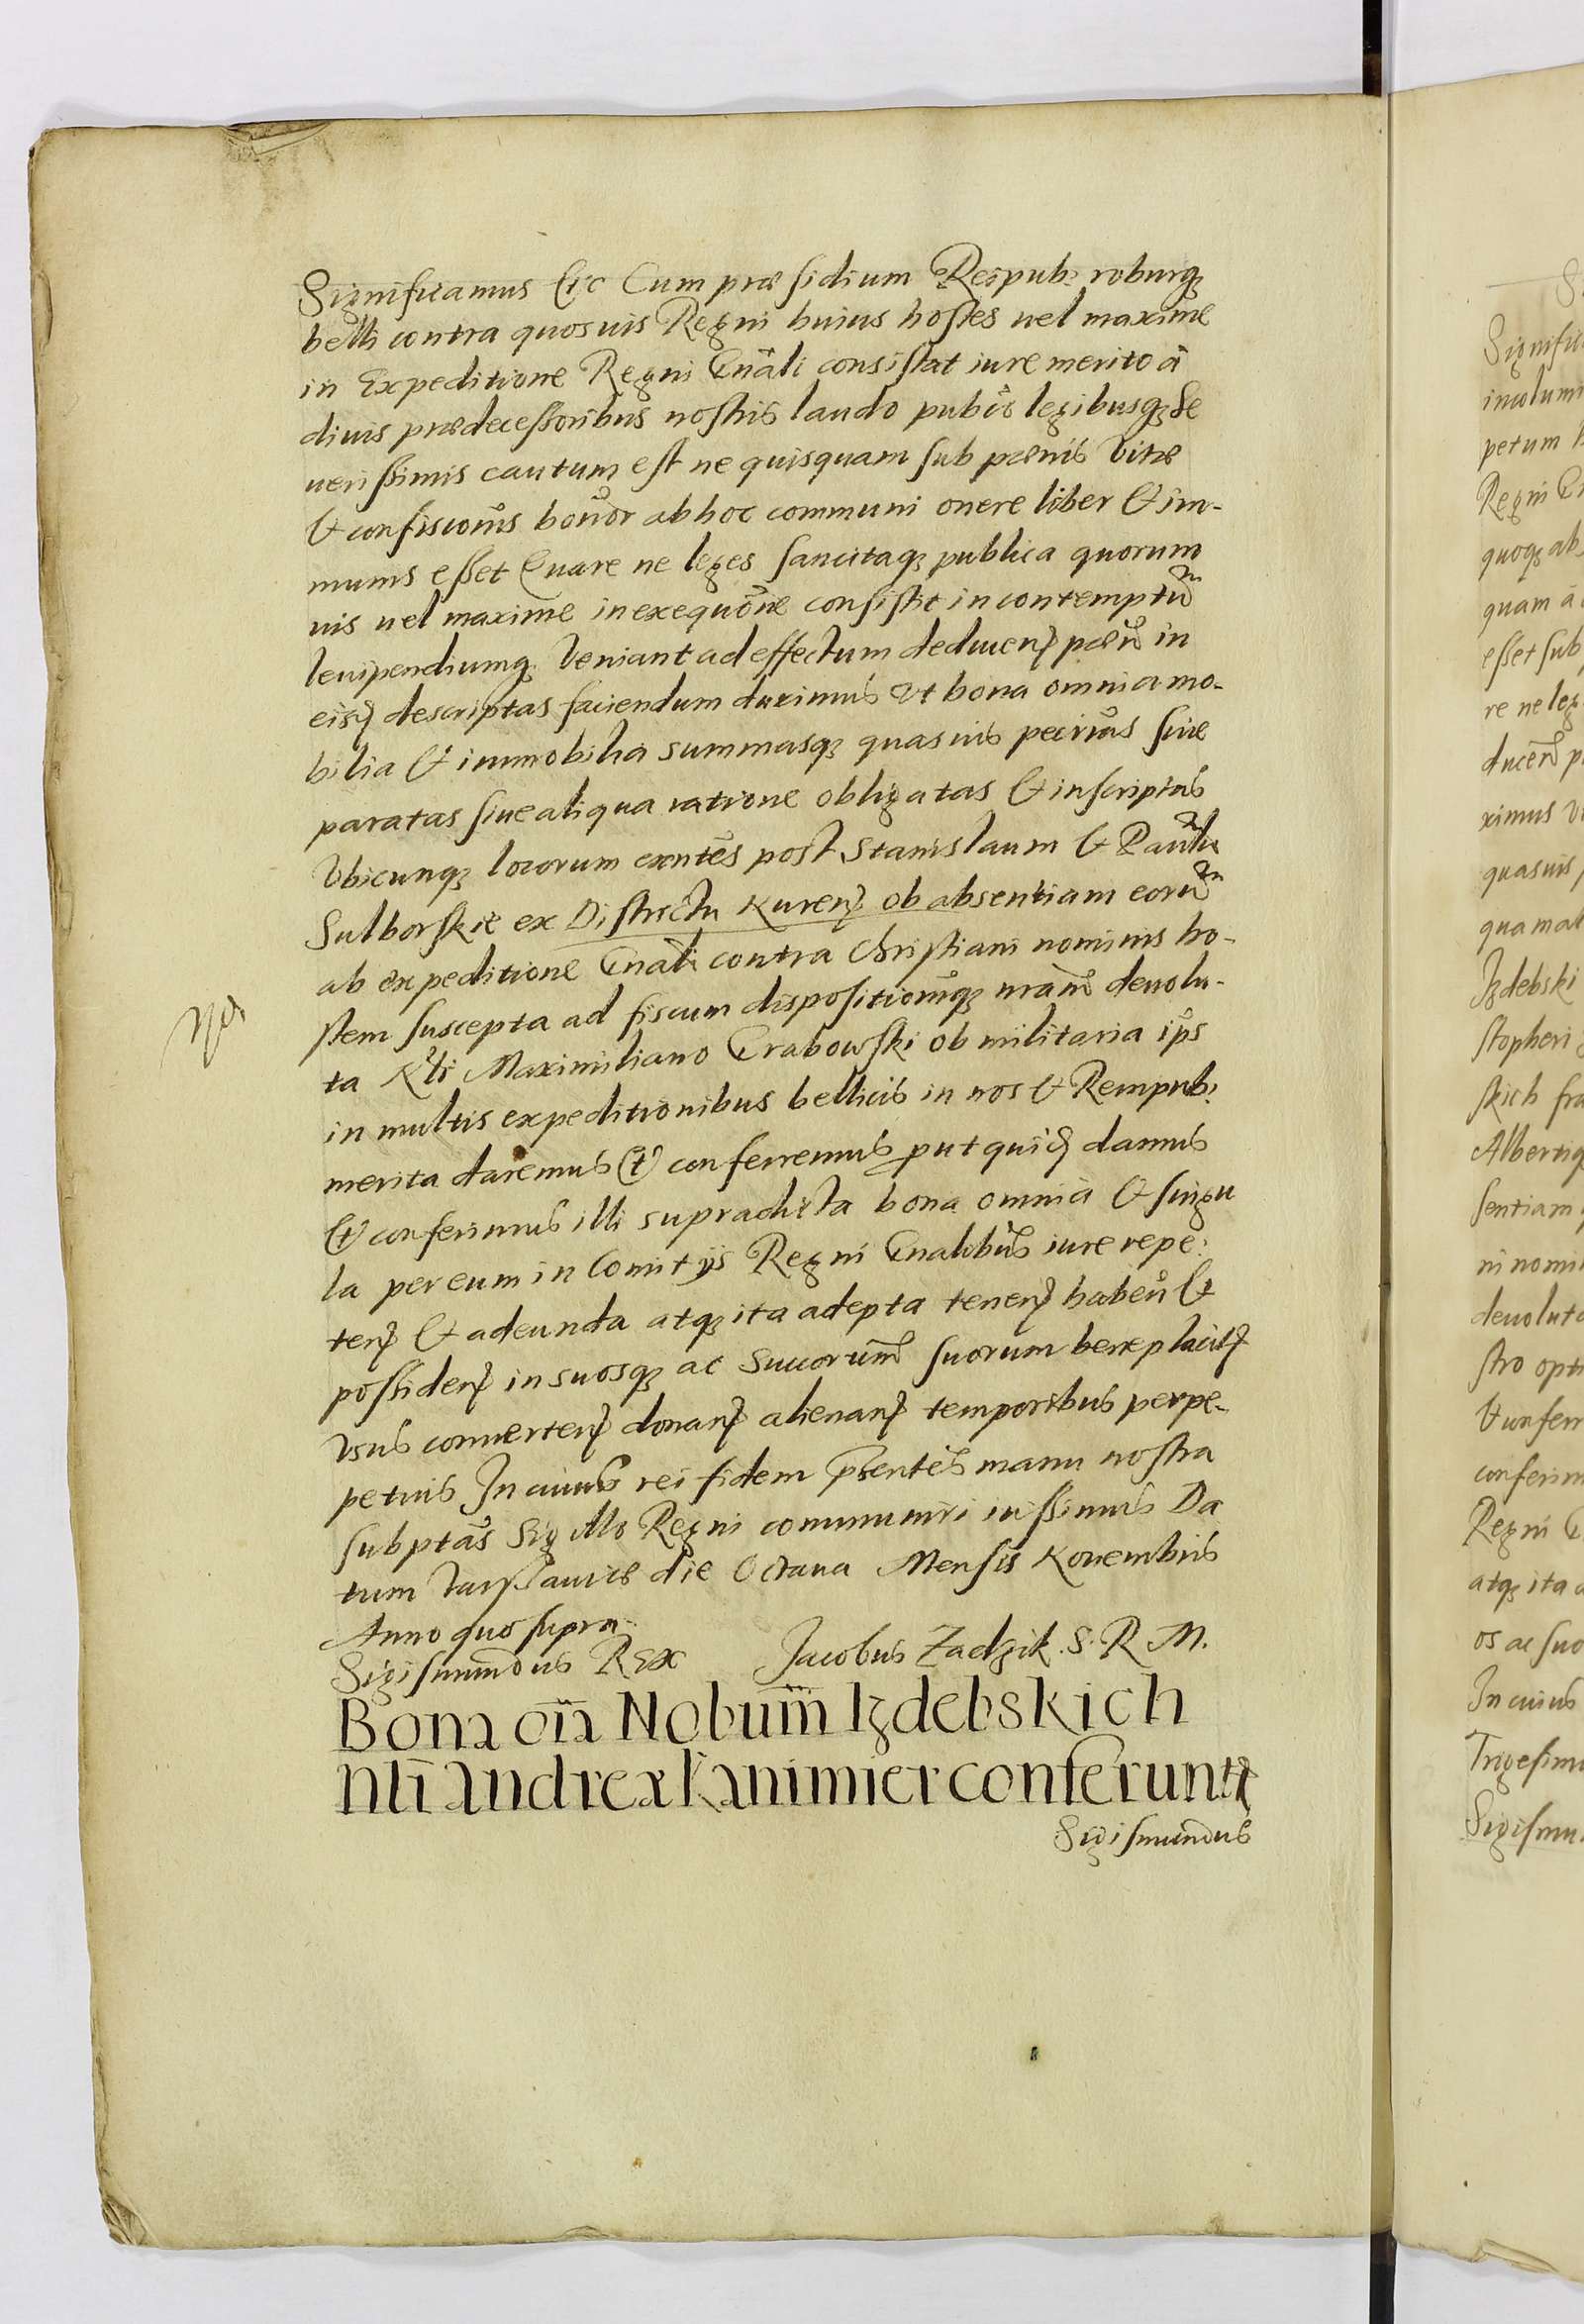 Significamus Etc Cum præsidium Reipub: roburq3
belli contra quosuis Regni huius hostes uel maxime
in Expeditione Regni Gnãli consistat iure merito à
diuis prædecessoribus nostris laudo pubco legibusq3 Se
uerissimis cautum est ne quisquam sub pænis Vitæ
Et confiscoñis bonor ab hoc communi onere liber Et im-
munis esset Quare ne leges sancitaq3 publica quorum
uis uel maxime in exequõne consistit in contemptũ
leuipendiumq3 Veniant ad effectum ducen pæñ in
eisd descriptas faciendum duximus Vt bona omnia mo-
bilia Et immobilia summasq3 quasuis pecrias siue
paratas siue aliqua ratione obligatas Et inscriptas
Vbicunq3 locorum exñtes post Stanislaum Et Paulũ
Sulborskie ex Districtu Kuren ob absentiam eorũ
ab expeditione Gnãli contra Christiani nominis ho-
stem suscepta ad fiscum dispositionẽq3 nrãm deuolu-
ta Nli Maximiliano Grabowski ob militaria ips
in multis expeditionibus bellicis in nos Et Rempub:
merita daremus Et conferremus put quid damus
Et conferimus illi supradicta bona omnia Et singu
la per eum in Comitijs Regni Gnalibus iure repe:
ten Et adeunda atq3 ita adepta tenen haben Et
possiden in suosq3 ac Succorum suorum beneplacit
Vsus conuerten donan alienan temporibus perpe-
petuis In cuius rei fidem pñtes manu nostra
subptas Sigillo Regni communiri iussimus Da
tum Varssauiæ die Octaua Mensis Nouembris
Anno quo supra
Sigismundus REX Jacobus Zadzik. S. R. M.
Bona oĩa Nobum Izdebskich
Nli Andreæ Kanimier conferuntr
Sigismundus
S
Signific
incolumi
petum
Regni G
quoq3 ab
quam à
esset sub
re ne leg
ducen p
ximus V
quasuis
qua mat
Izdebski
stopheri
skich fra
Albertiq
sentiam
ni nomi
deuoluta
stro opti
Et confer
conferim
Regni G
atq3 ita a
os ac suo
In cuius
Trigesim
Sigismu